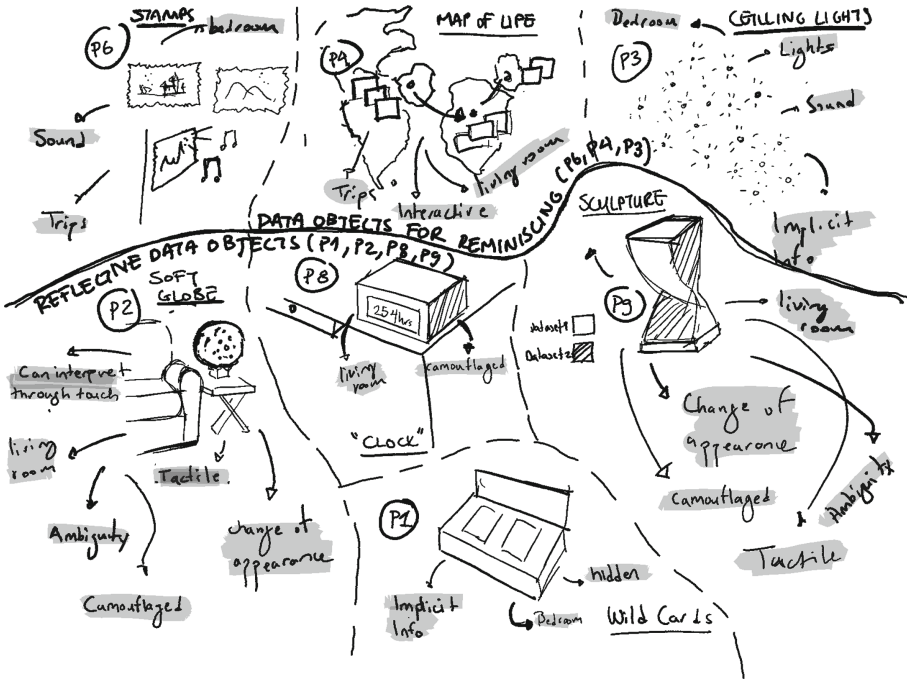 STAMPS
P6
bedroom
Sound
Trips
MAP OF LIFE
P4
Trips
Interactive
living room
CEILLING LIGHTS
P3
Bedroom
Lights
Sound
Implicit
Info
DATA OBJECTS FOR REMINISCING (P6, P4, P3)
REFLECTIVE DATA OBJECTS (P1, P2, P8, P9)
SOFT
GLOBE
P2
Can interpret
through touch
living
room
Ambiguity
Camouflaged
Tactile
change of
appearance
P8
254hrs
living
room
camouflaged
"CLOCK"
SCULPTURE
P9
Dataset1
Dataset2
living
room
Change of
appearance
Camouflaged
Ambiguity
Tactile
P1
Implicit
Info
Bedroom
hidden
Wild Cards